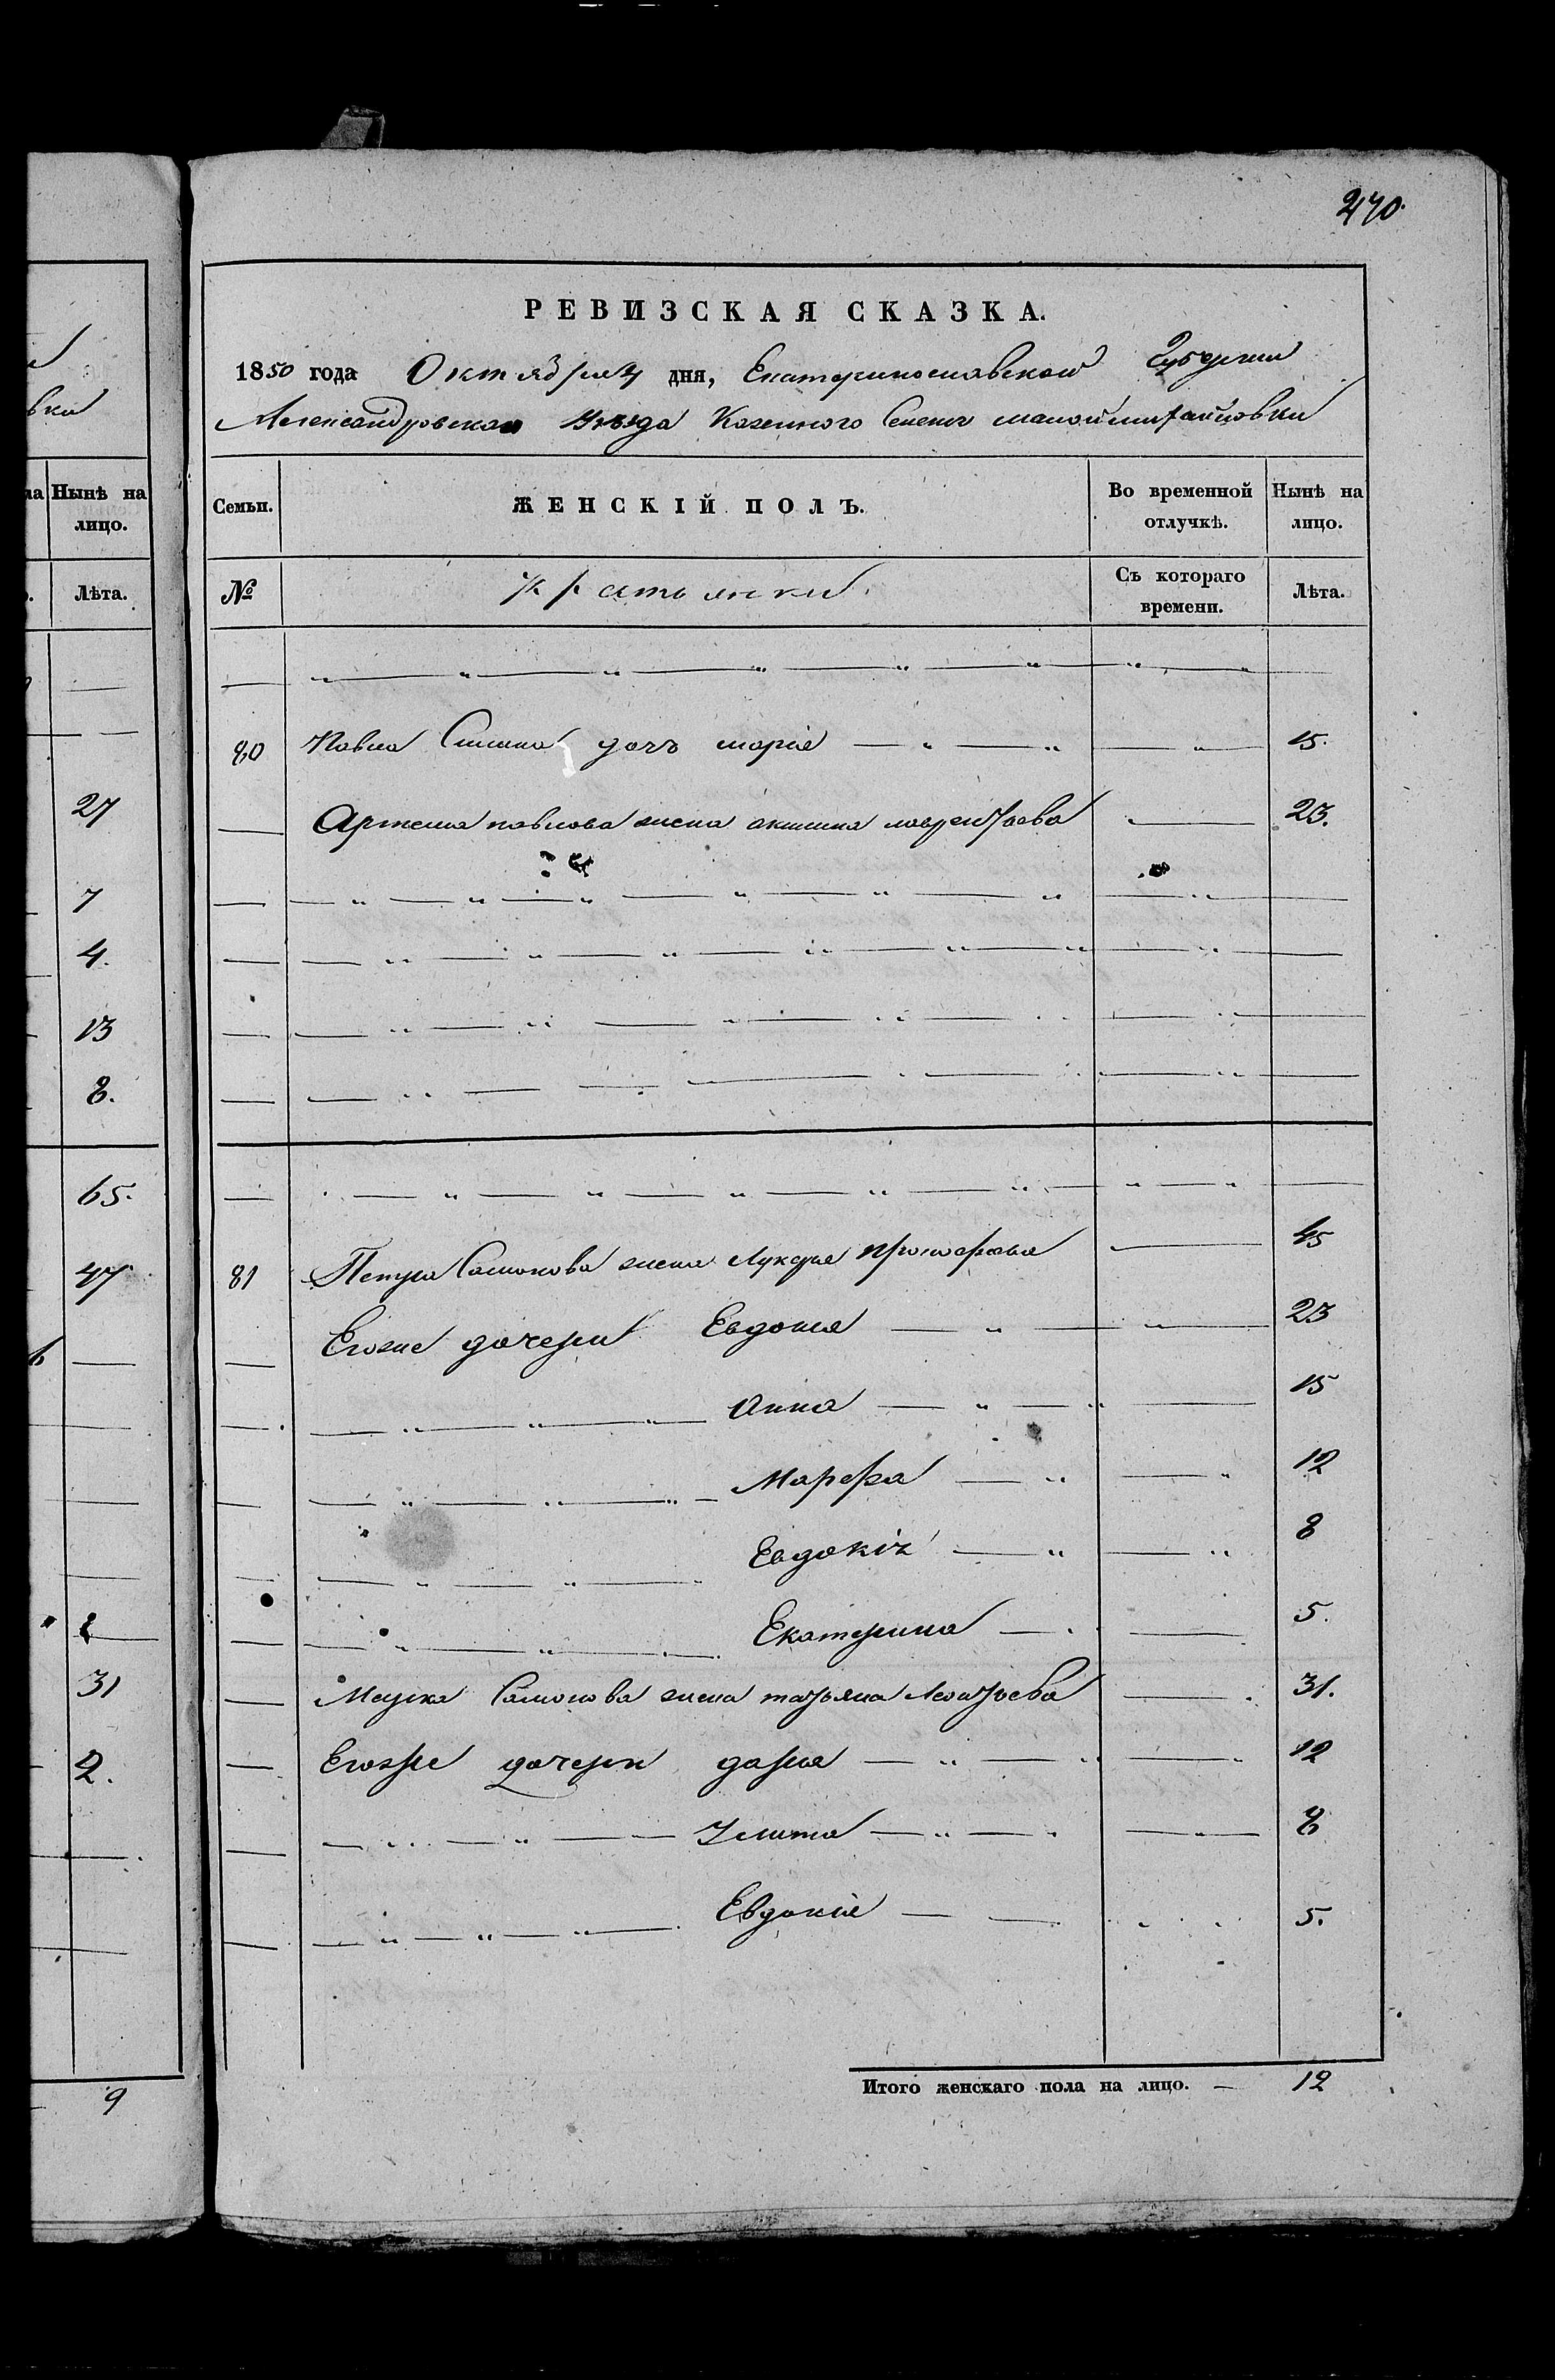 270.
РЕВИЗСКАЯ СКАЗКА.
1850 года Октября дня, Екатеринославской Губернии
Александровского Уѣзда Казенного Селенія малой михайловки
Семьи.
ЖЕНСКІЙ ПОЛЪ.
Во временной отлучкѣ.
Нынѣ на лицо.
№
Крестьянки
Съ котораго времени.
Лѣта.
80 Павла дочь марія 15.
Артема павлова жена акилина лаврентьева 23.
81 Петра Самонова жена Лукерья 45
Егоже дочери Евдокия 23
Анна 15
Марфа 12
Евдокія 8
Екатерина 5.
Самонова жена татьяна Леонтьева 31.
Егоже дочери дарья 12
8
Евдокія 5.
Итого женскаго пола на лицо. — 12
вки
Нынѣ на лицо.
Лѣта.
27
7
4.
13
8.
65.
47
31
2.
9